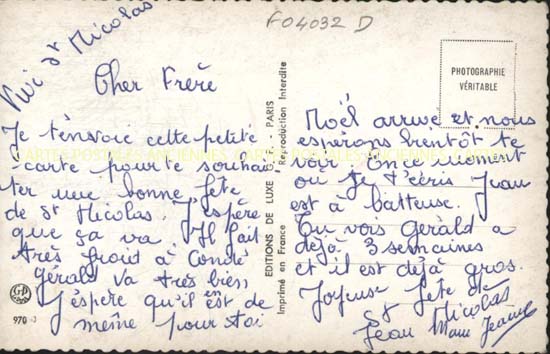 F04032 D
Vive St Nicolas
Cher Frère
Je t'envoie cette petite
carte pour te souhai
ter une bonne fête
de St Nicolas. J'espère
que ça va. Il fait
très froid à Condé
gérald va très bien
J'espère qu'il en est de
même pour toi
GP
970
EDITIONS DE LUXE - PARIS
Imprimé en France - Reproduction Interdite
PHOTOGRAPHIE
VÉRITABLE
Noël arrive et nous
espérons bientôt te
voir. En ce moment
ou je t'écris Jean
est à batteuse.
Tu vois Gérald a
déjà 3 semaines
et il est déjà gros.
Joyeuse fête de
St Nicolas
Jean Marie Jeanne
CARTES POSTALES ANCIENNES